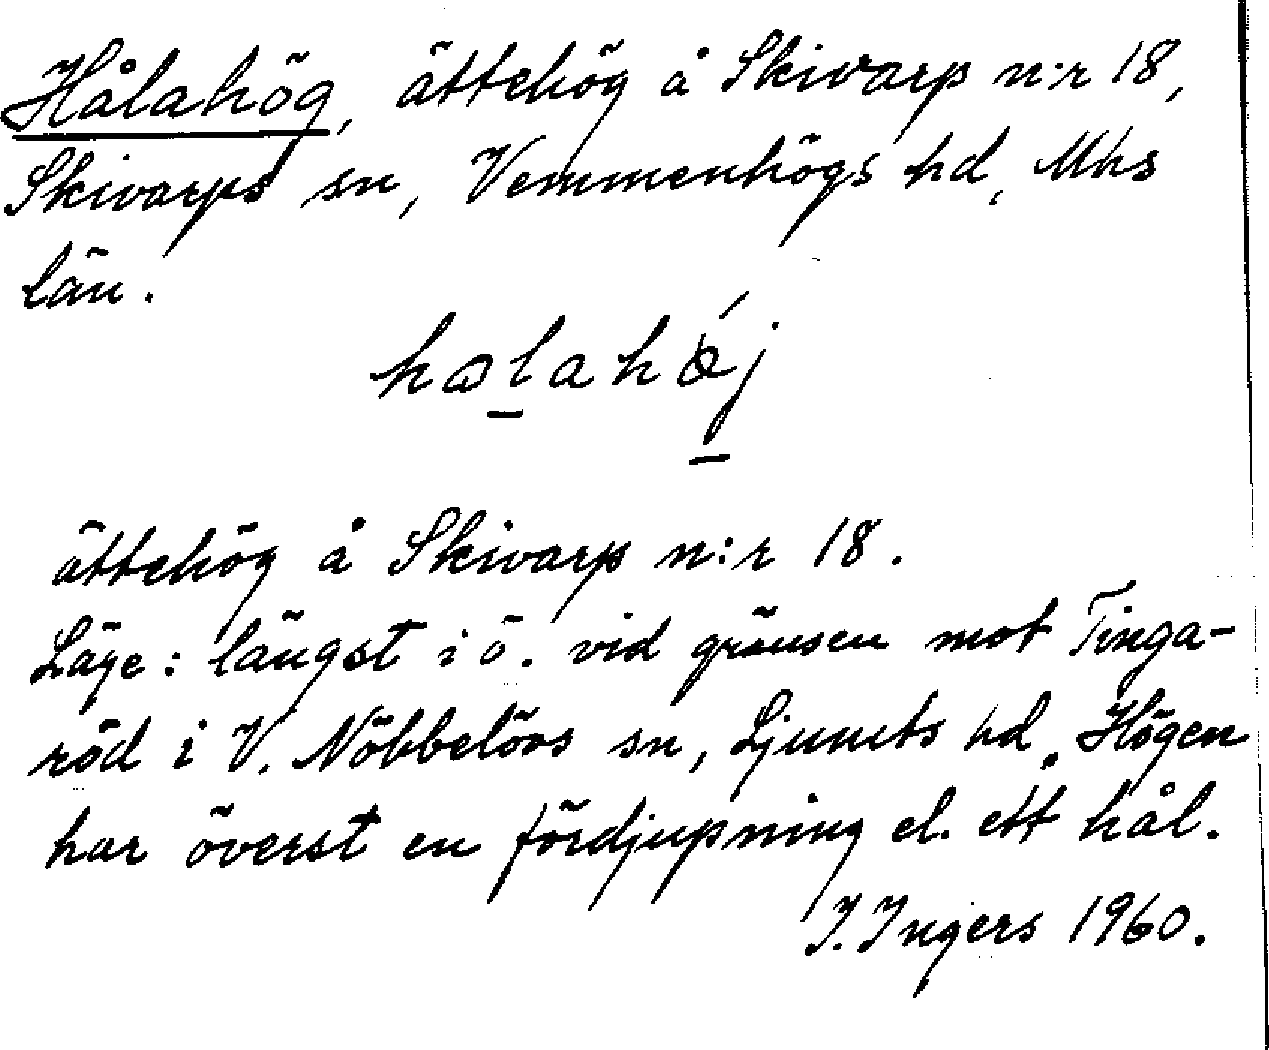 Hålahög, ättehög å Skivarp n:r 18,
Skivarps sn, Vemmenhögs hd, Mhs
län.
hɷlahǿj
ättehög å Skivarp n:r 18.
Läge: längst i ö. vid gränsen mot Tinga-
röd i V. Nöbbelövs sn, Ljunits hd. Högen
har överst en fördjupning el. ett hål.
I. Ingers 1960.